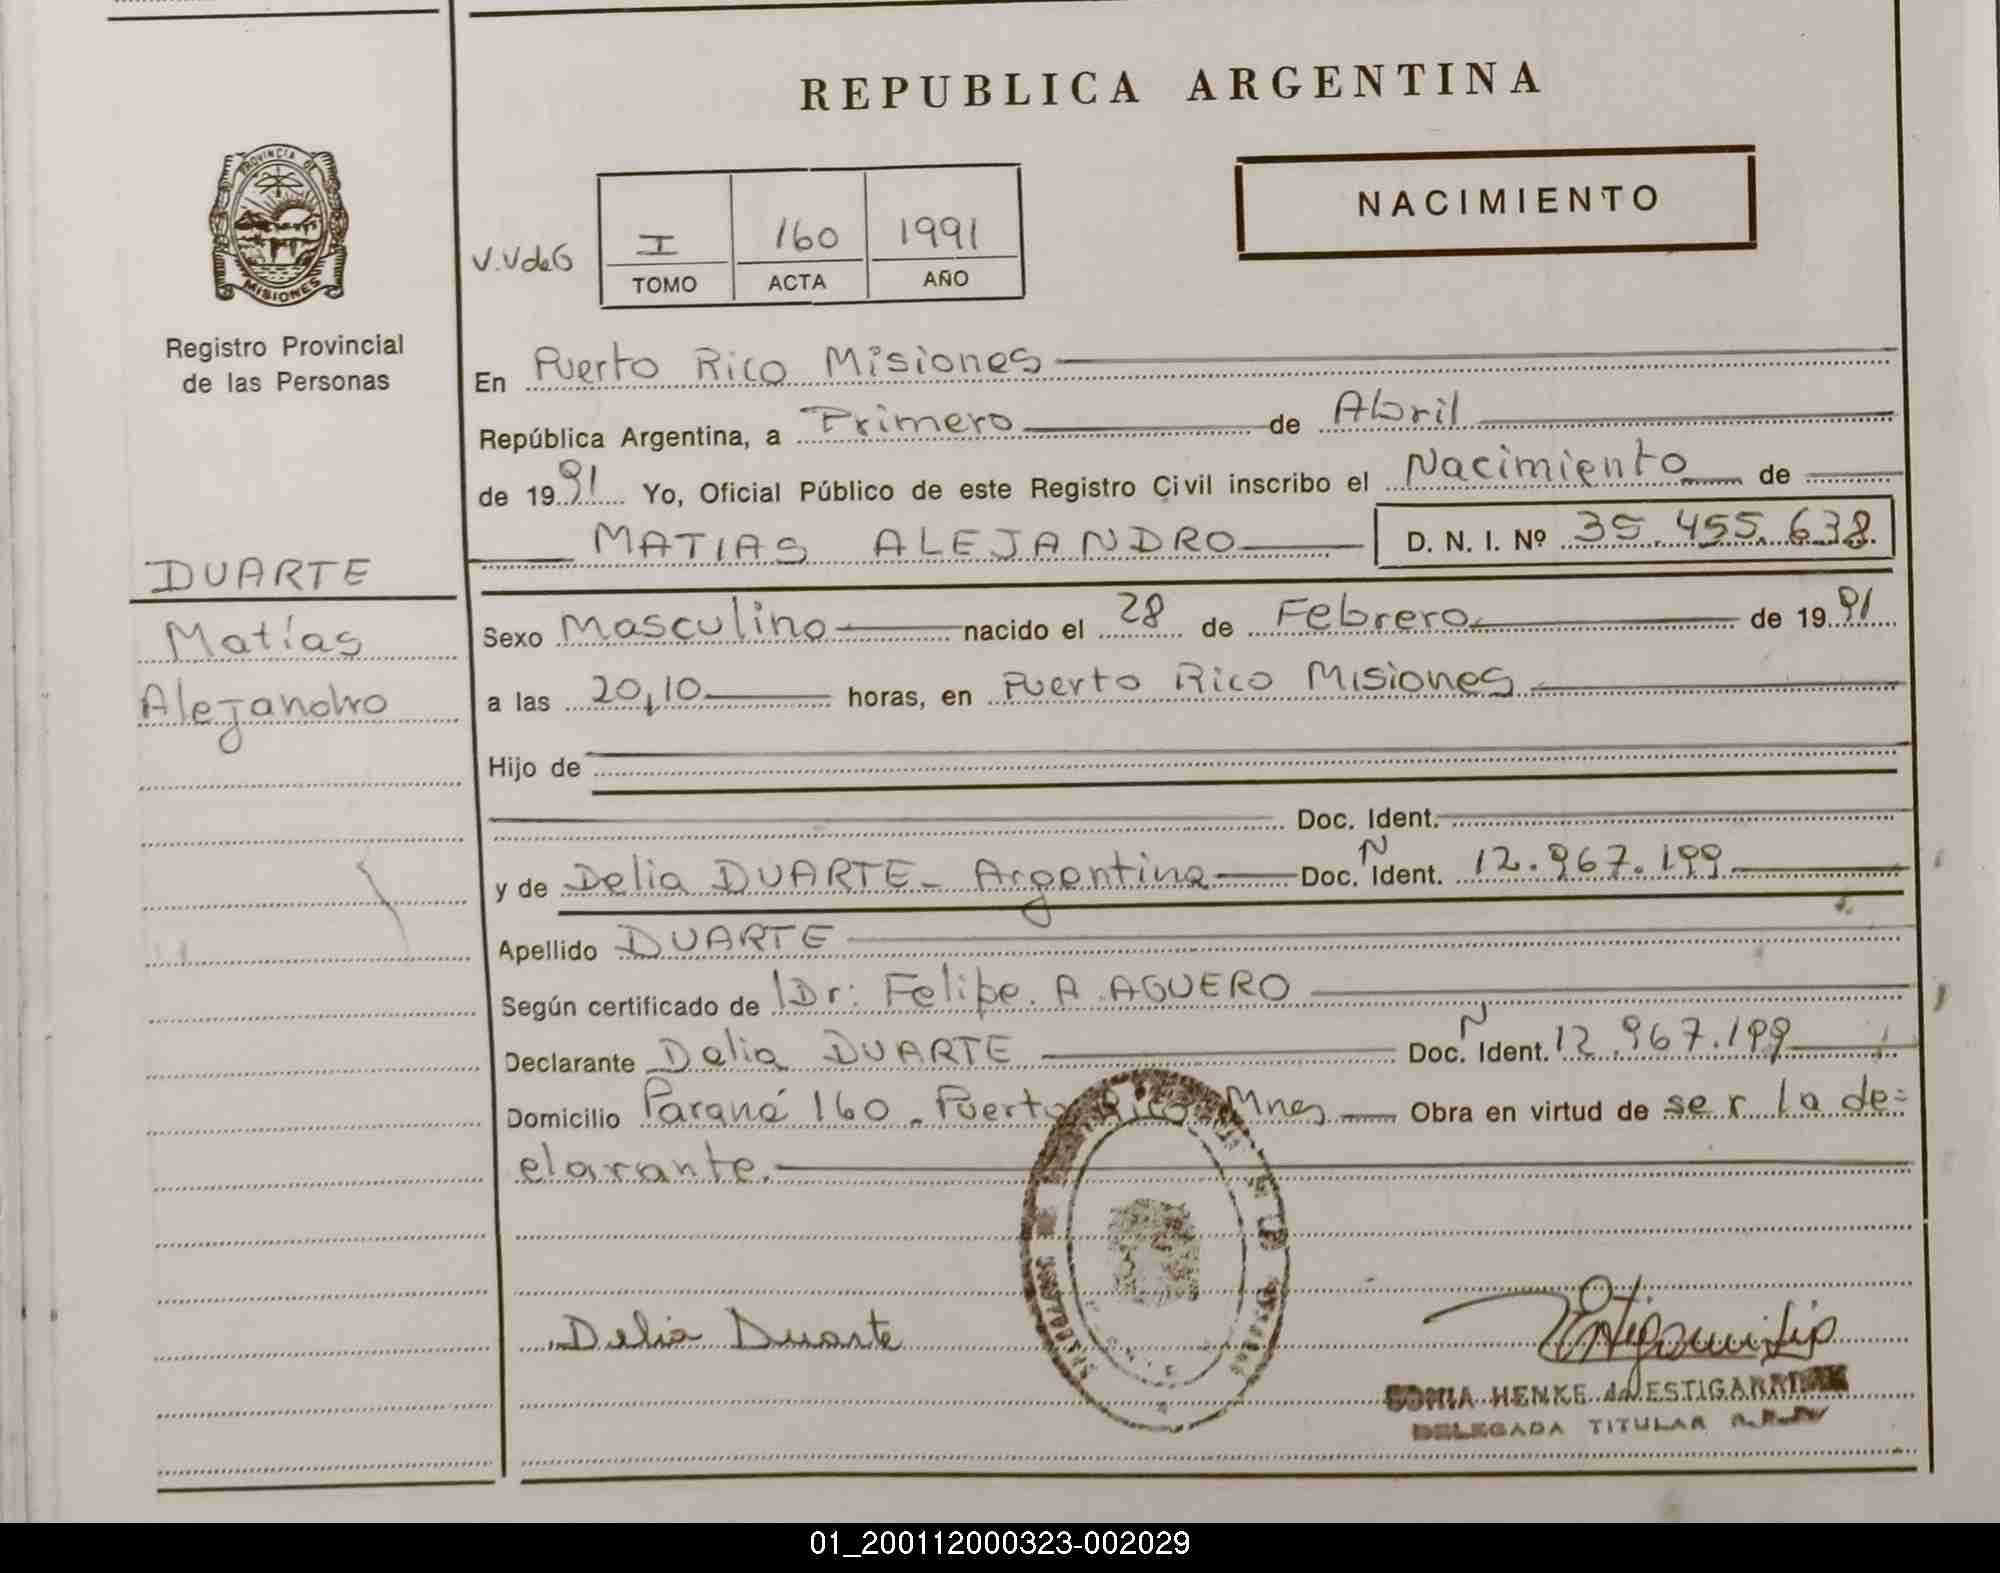 REPUBLICA ARGENTINA
NACIMIENTO
PROVINCIA DE
MISIONES
Registro Provincial
de las Personas
V.VdeG
I 160 1991
TOMO ACTA AÑO
En Puerto Rico Misiones
República Argentina, a Primero de Abril
de 1991 Yo, Oficial Público de este Registro Civil inscribo el Nacimiento de
MATIAS ALEJANDRO D. N. I. Nº 35.455.638
DUARTE
Matías
Alejandro
Sexo Masculino nacido el 28 de Febrero de 1991
a las 20,10 horas, en Puerto Rico Misiones
Hijo de
Doc. Ident.
y de Delia DUARTE - Argentina Doc. N Ident. 12.967.199
Apellido DUARTE
Según certificado de Dr: Felipe. A. AGUERO
Declarante Delia DUARTE Doc. N Ident. 12.967.199
Domicilio Paraná 160 - Puerto Rico Mnes Obra en virtud de ser la de=
clarante.
Delia Duarte
SONIA HENKE de ESTIGARRIBIA
DELEGADA TITULAR
01_200112000323-002029